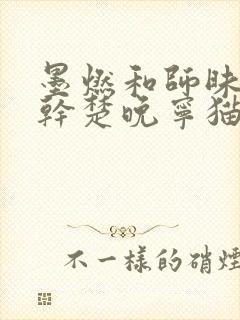 墨燃和師昧
幹楚晚寧猫
不一樣的硝煙